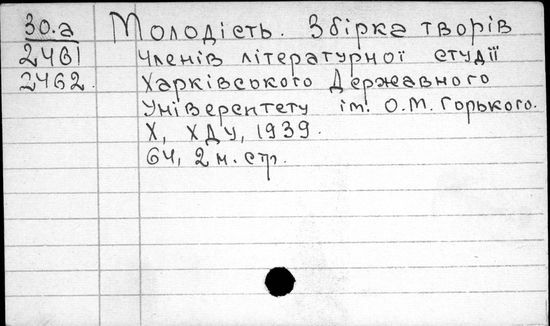 30.a Молодість. Збірка творів
2461 членів літературної студії
2462. Харківського Державного
Університету ім. О.М. Горького.
Х, ХДУ, 1939.
64, 2 н. стр.